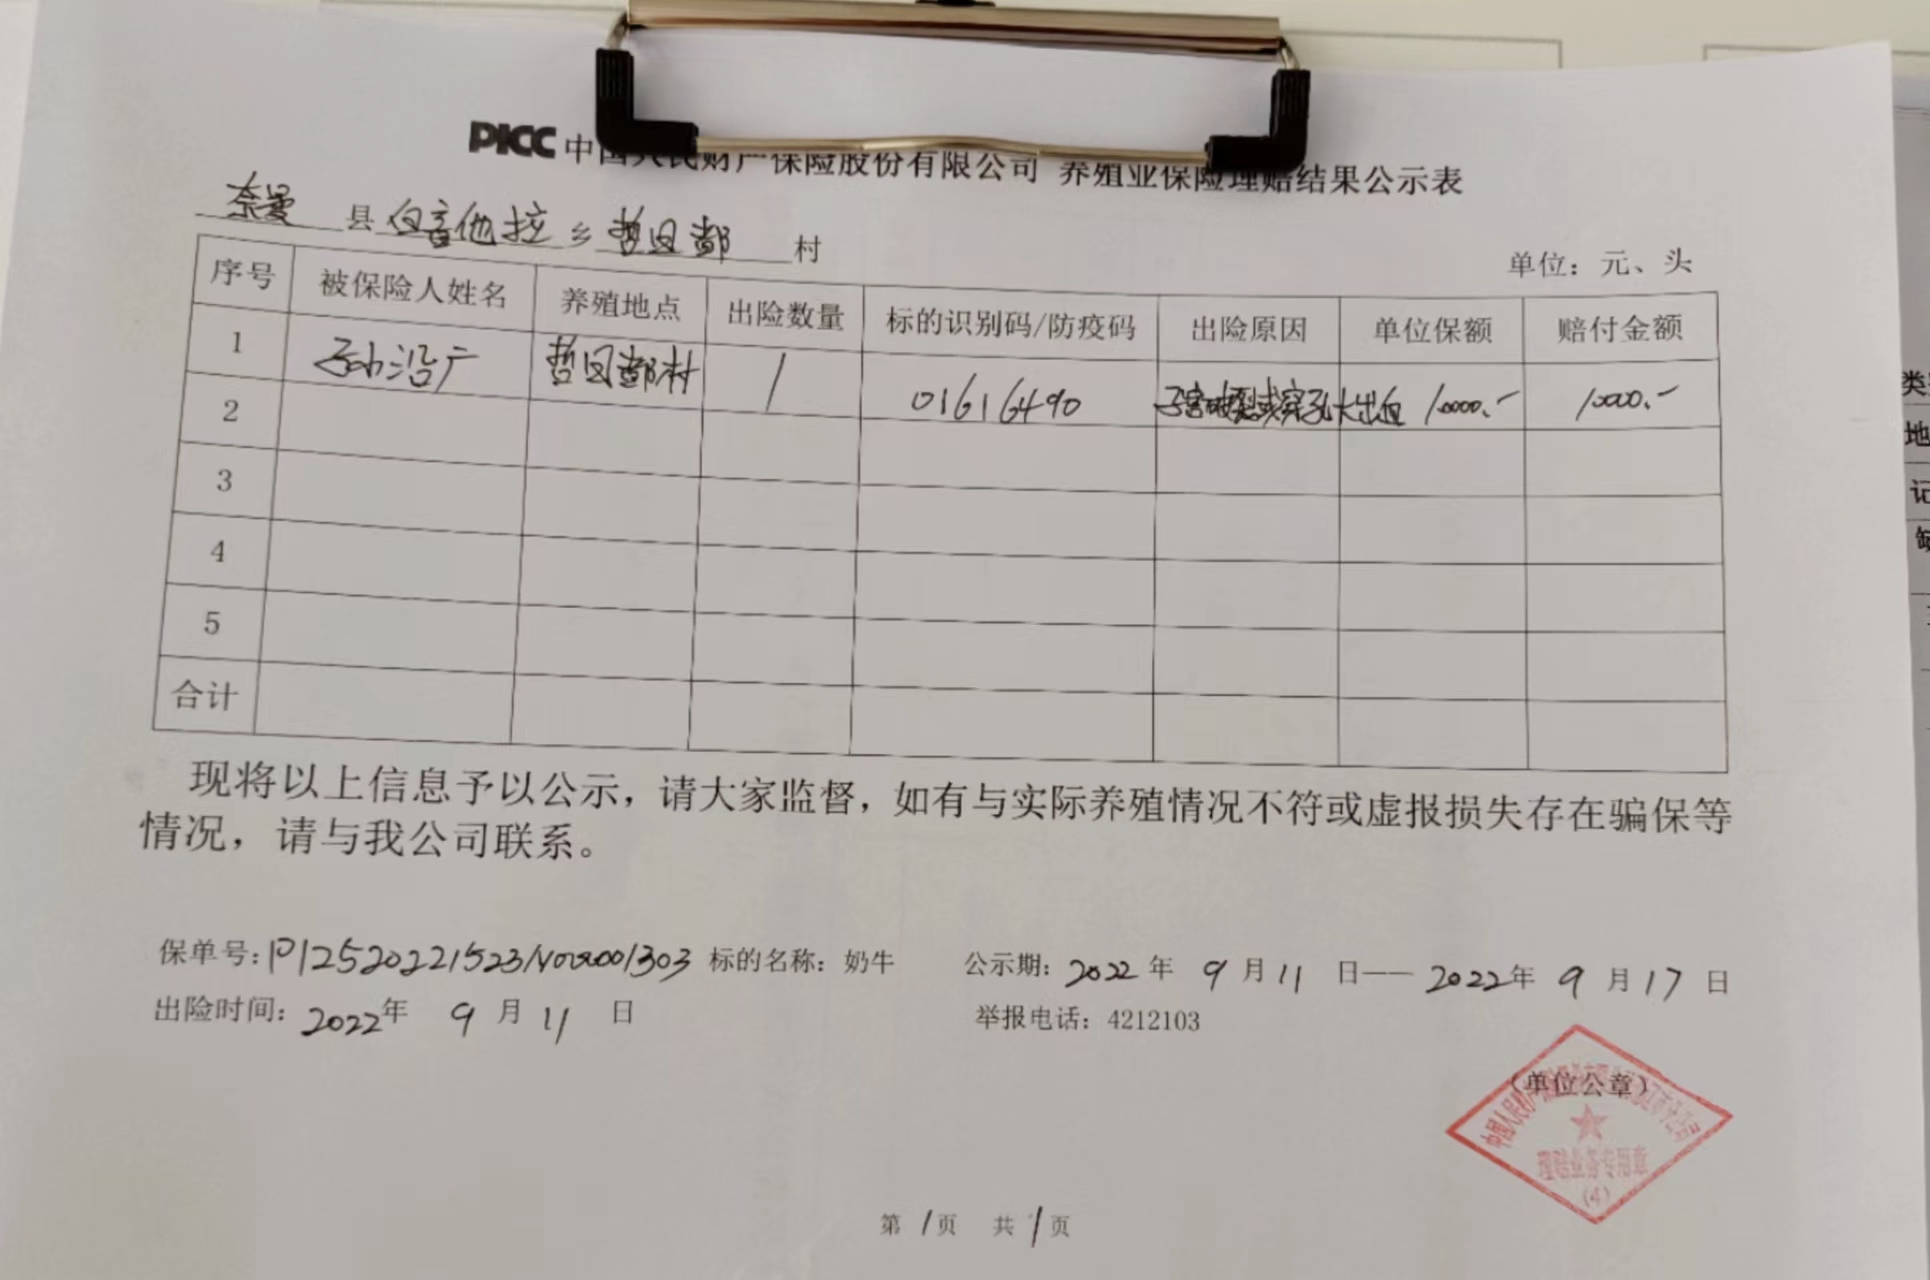 PICC 中国人民财产保险股份有限公司 养殖业保险理赔结果公示表
奈曼 县 白音他拉 乡 哲日都 村
单位：元、头
序号 被保险人姓名 养殖地点 出险数量 标的识别码/防疫码 出险原因 单位保额 赔付金额
1 孙沿广 哲日都村 1 01616490 子宫破裂或穿孔大出血 10000.- 10000.-
2
3
4
5
合计
现将以上信息予以公示，请大家监督，如有与实际养殖情况不符或虚报损失存在骗保等
情况，请与我公司联系。
保单号： 标的名称：奶牛 公示期：2022年 9月11日——2022年9月17日
出险时间：2022年 9月11日 举报电话：4212103
（单位公章）
理赔业务专用章
(4)
第1页 共1页
类
地
记